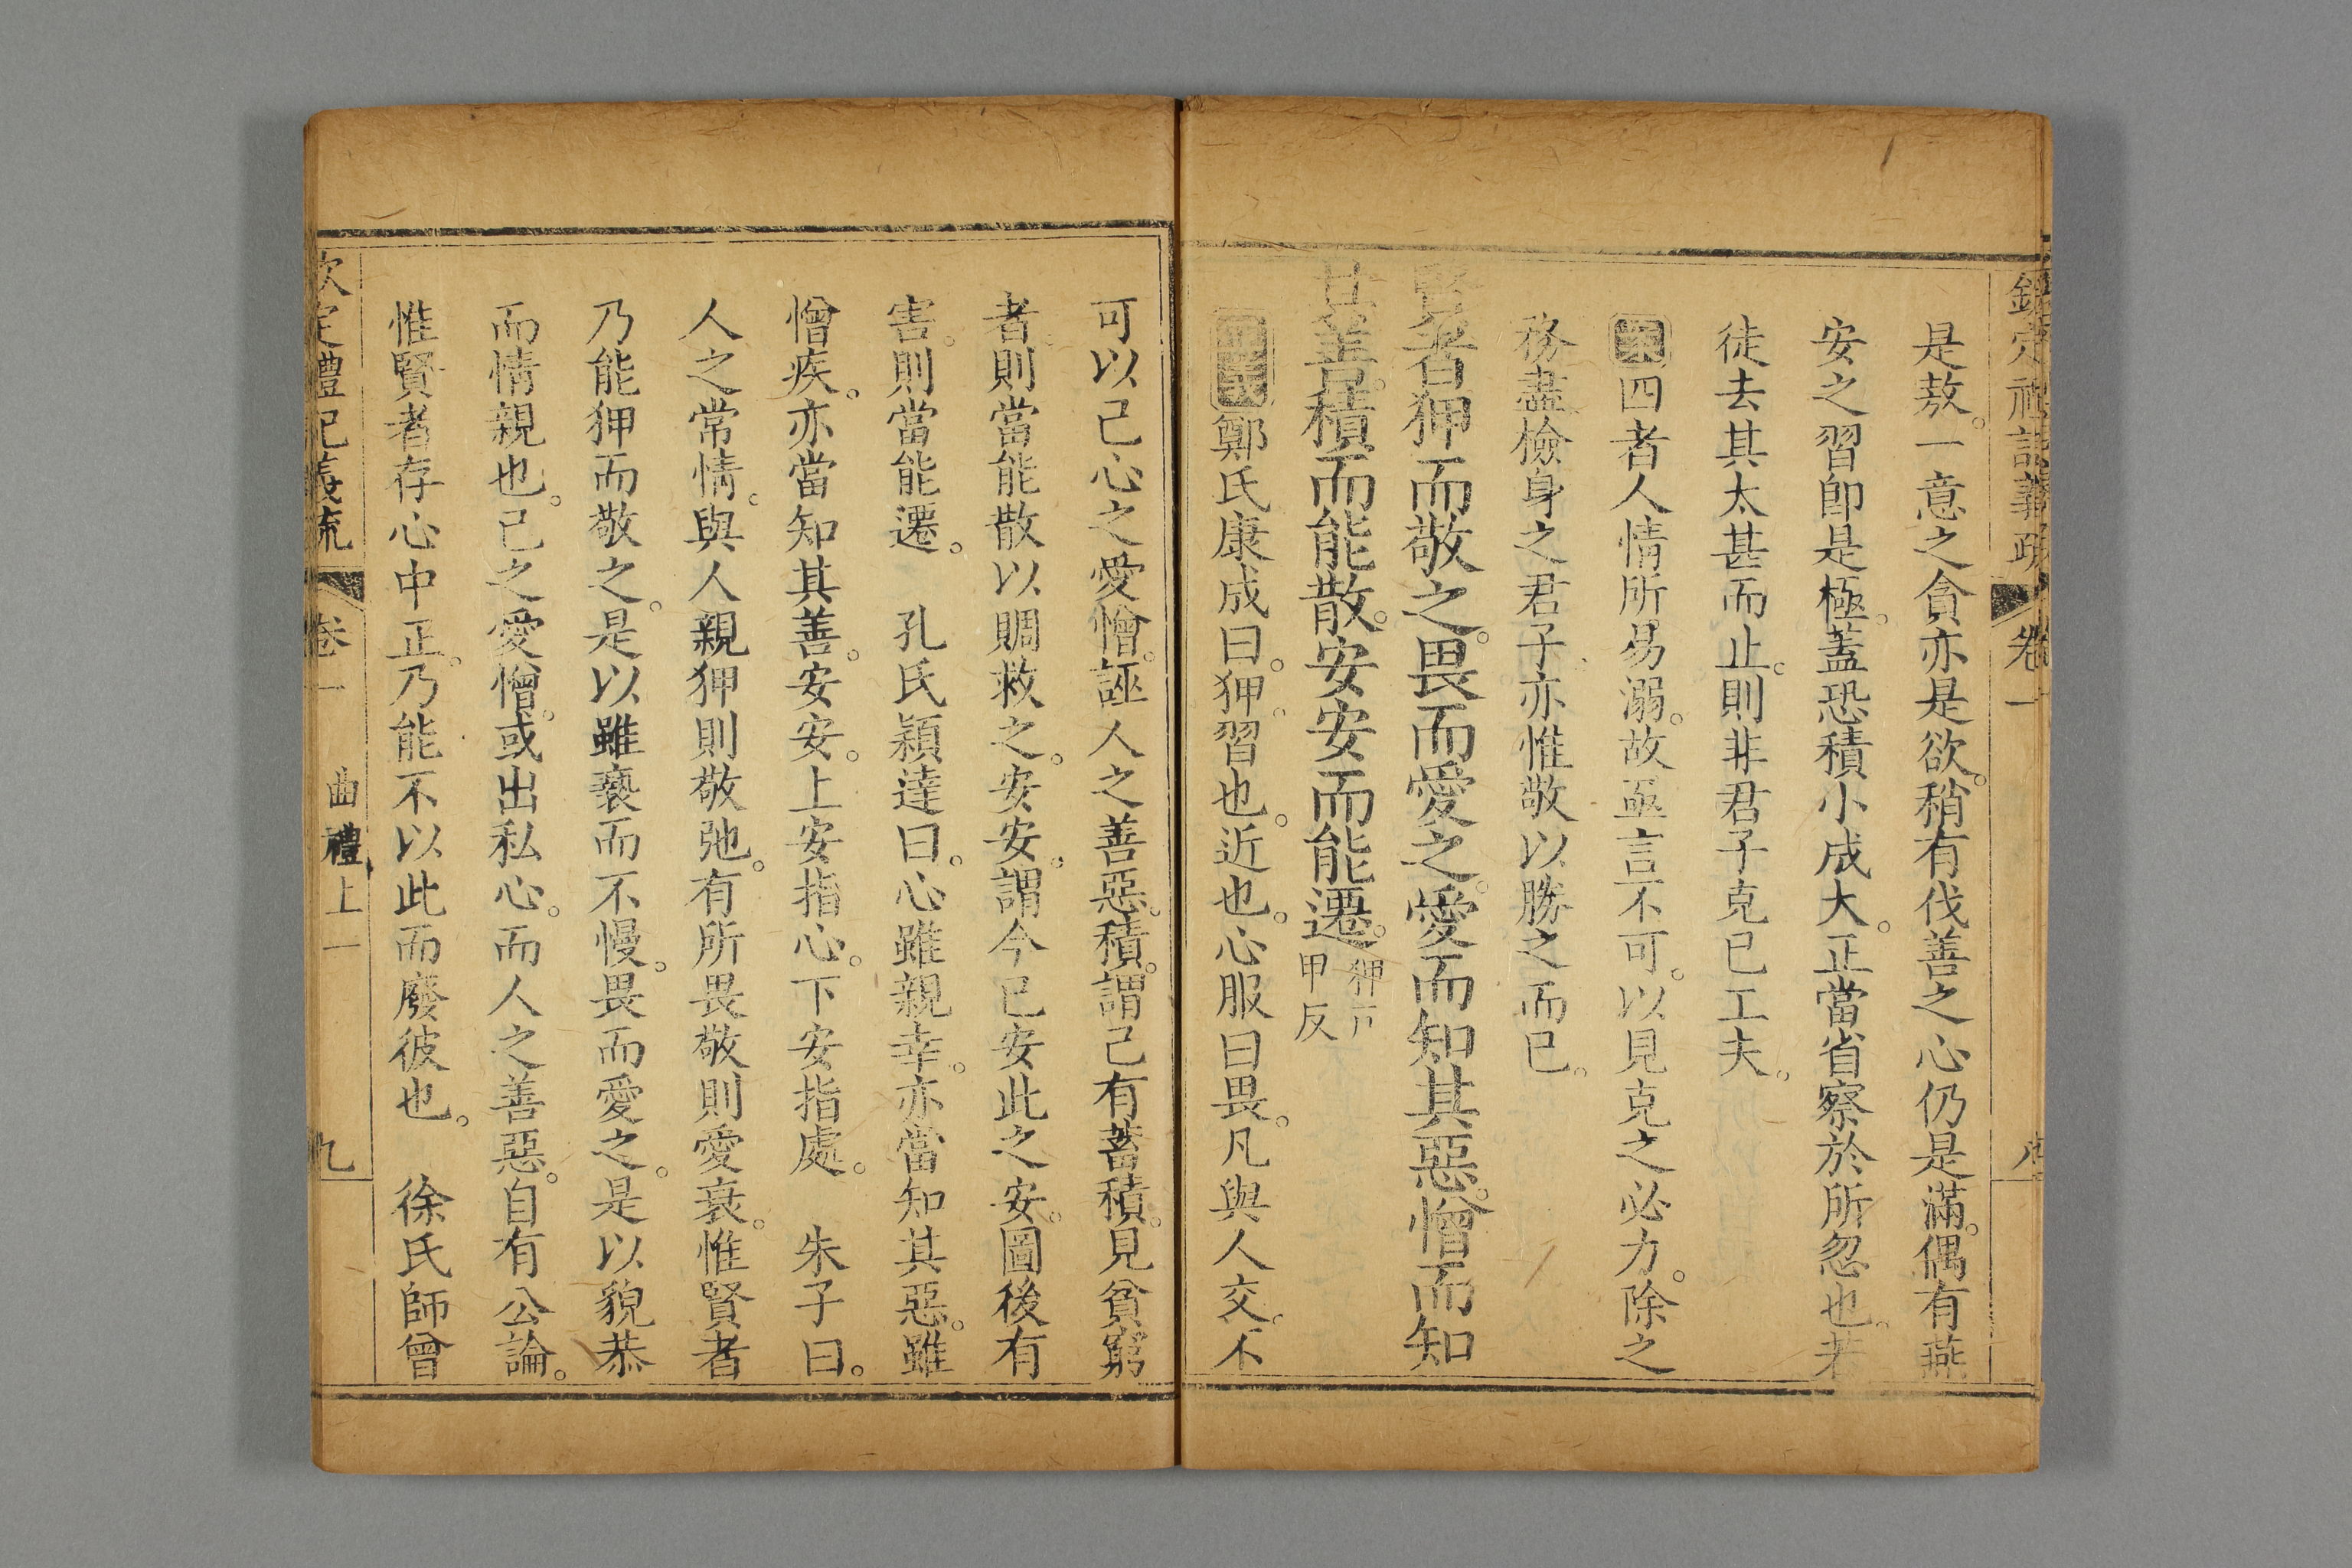 欽定禮記義疏 卷一
是敖。一意之貪亦是欲。稍有伐善之心仍是滿。偶有燕
安之習卽是極。蓋恐積小成大。正當省察於所忽也。若
徒去其太甚而止。則非君子克己工夫。
案四者人情所易溺。故亟言不可。以見克之必力。除之
務盡檢身之君子。亦惟敬以勝之而已。
賢者狎而敬之。畏而愛之。愛而知其惡。憎而知
其善。積而能散。安安而能遷。狎戸
甲反
鄭氏康成曰。狎。習也。近也。心服曰畏。凡與人交。不
可以己心之愛憎。誣人之善惡。積。謂己有蓄積。見貧窮
者。則當能散以賙救之。安安。謂今已安此之安。圖後有
害。則當能遷。 孔氏穎達曰。心雖親幸。亦當知其惡。雖
憎疾。亦當知其善。安安。上安指心。下安指處。 朱子曰。
人之常情。與人親狎則敬弛。有所畏敬則愛衰。惟賢者
乃能狎而敬之。是以雖褻而不慢。畏而愛之。是以貌恭
而情親也。己之愛憎。或出私心。而人之善惡。自有公論。
惟賢者存心中正。乃能不以此而廢彼也。 徐氏師曾
欽定禮記義疏 卷一 曲禮上一 九